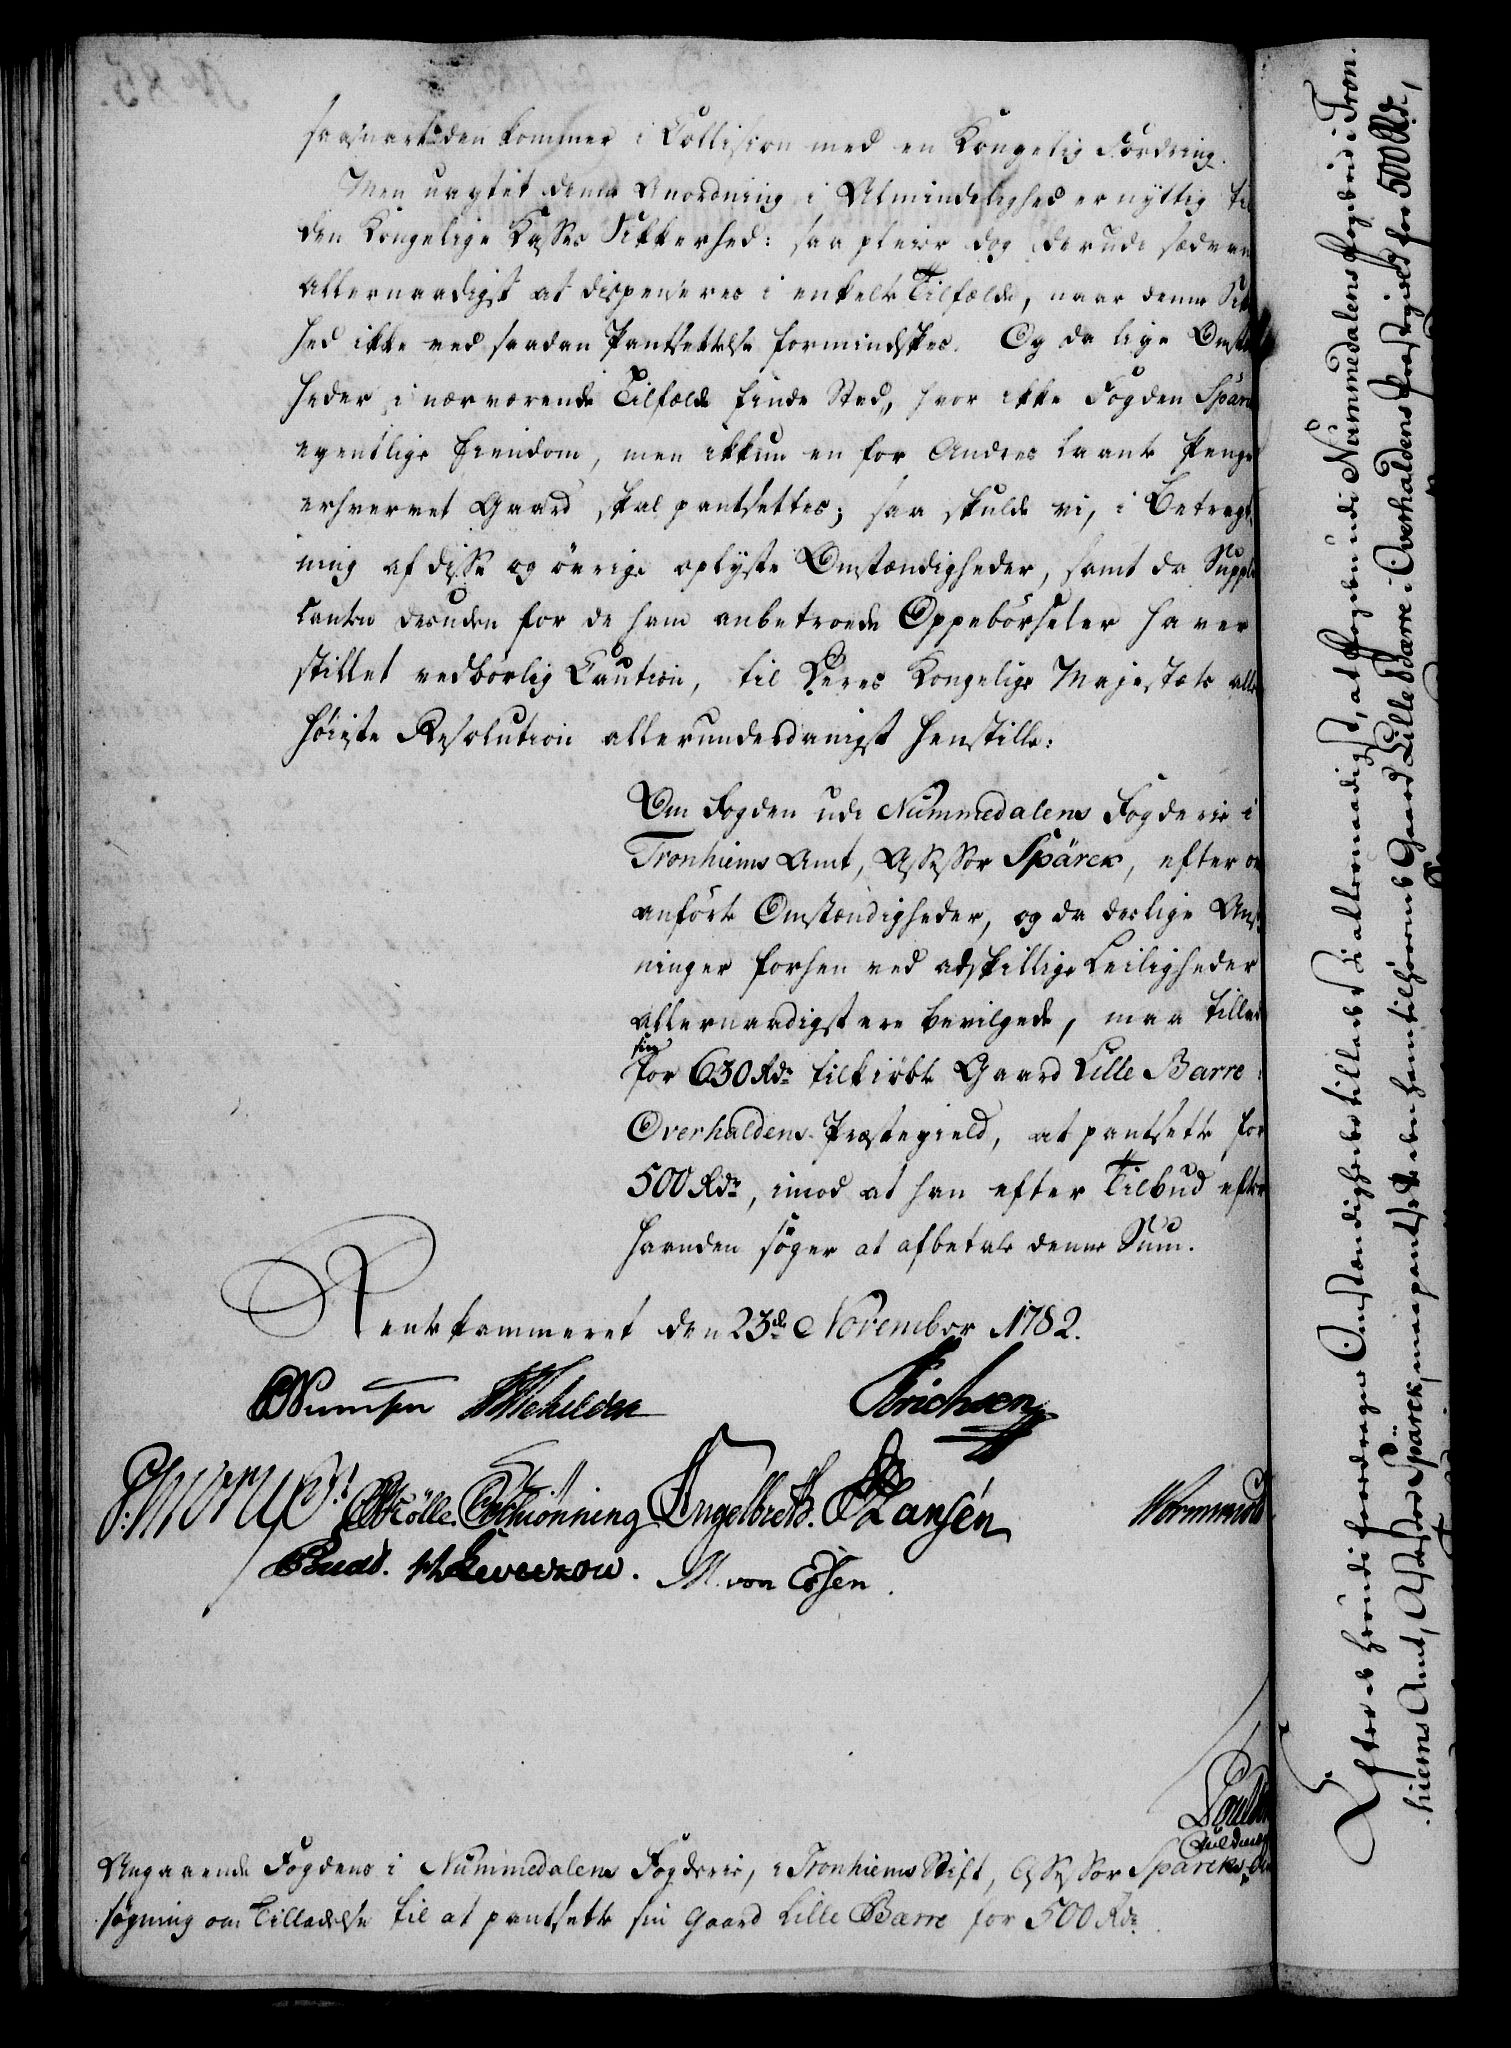 saasnart den kommer i Collision med en Kongelig Fordring.
Men uagtet denne Anordning i Almindelighed er nyttig til
den Kongelige Kasses Sikkerhed: saa pleier dog derudi sædvan
allernaadigst at dispenseres i enkelte Tilfælde, naar denne Sik
hed ikke ved saadan Pantsættelse formindskes. Og da lige Omstæ
heder i nærværende Tilfælde finde Sted, hvor ikke Fogden Spärck
egentlige Eiendom, men ikkun en for Andres laante Penge
erhvervet Gaard skal pantsettes; saa skulde vi, i Betragt-
ning af disse og övrige oplyste Omstændigheder, samt da Suppli
canten desuden for de ham anbetroede Oppebörseler haver
stillet vedbörlig Caution, til Deres Kongelige Majestæts aller
höieste Resolution allerunderdanigst henstille:
Om Fogden udi Nummedalens Fogderie i
Tronhiems Amt, Assessor Spärck, efter o
anförte Omstændigheder, og da deslige Ans
ninger forhen ved adskillige Leiligheder
allernaadigst ere bevilgede, maa tillad
sin
for 630 Rdr tilkiöbte Gaard Lille Barre i
Overhaldens Præstegield, at pantsette for
500 Rdr, imod at han efter Tilbud efter
haanden söger at afbetale denne Sum.
Rentekammeret den 23de November 1782.
Numsen Schilden Erichsen
Morup Mölle Schiönning Engelbreth. Hansen Wormskiold
Budtz. Leverzow. M. von Essen.
Angaaende Fogdens i Nummedalens Fogderie, i Tronhiems Stift, Assessor Spärcks An
søgning om Tilladelse til at pantsette sin Gaard Lille Bærre for 500 Rdr.
Efter de herudi foredragne Omstændigheder tillade Vi allernaadigst, at Fogden udi Nummedalens Fogderie i Tron-
hiems Amt, Assessor Spärck, maa pantsette den ham tilhörende Gaard Lille Bærre i Overhaldens Præstegield for 500 Rdr,